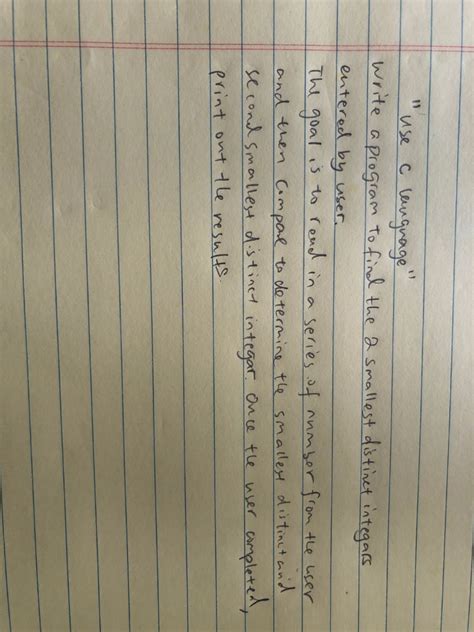 "use c language"
write a program to find the 2 smallest distinct integars
entered by user.
The goal is to read in a series of number from the user
and then compare to determine the smallest distinct and
second smallest distinct integar. Once the user completed,
print out the results